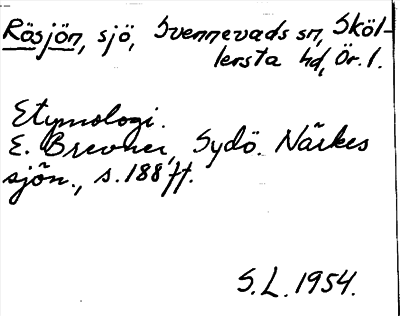 Rösjön, sjö, Svennevads sn, Sköl-
lersta hd, Ör. l.
Etymologi.
E. Brevner, Sydö. Närkes
sjön., s. 188 ff.
S.L. 1954.